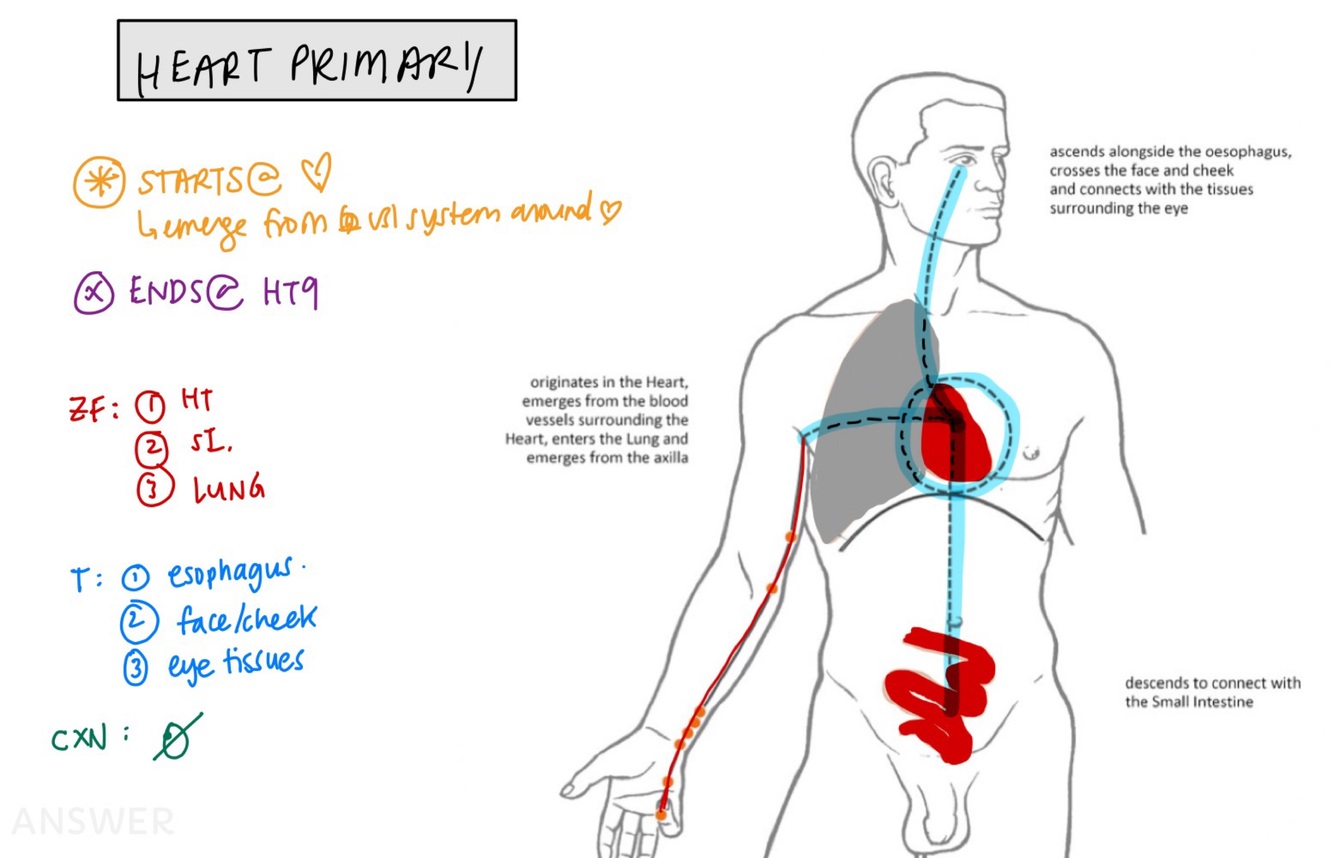 HEART PRIMARY
STARTS@ ♡
↳ emerge from vsl system around ♡
ⓧ ENDS@ HT9
ZF: ① HT
② SI.
③ LUNG
T: ① esophagus.
② face/cheek
③ eye tissues
CXN: Ø
ANSWER
ascends alongside the oesophagus,
crosses the face and cheek
and connects with the tissues
surrounding the eye
originates in the Heart,
emerges from the blood
vessels surrounding the
Heart, enters the Lung and
emerges from the axilla
descends to connect with
the Small Intestine